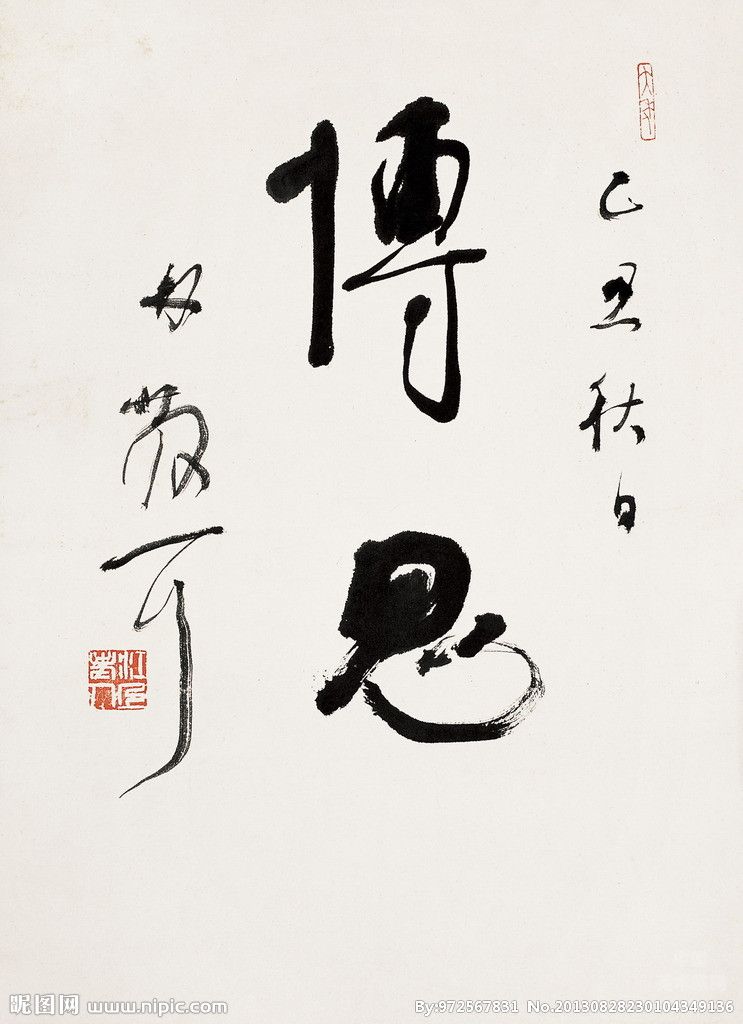 己丑秋日
博思
昵图网 www.nipic.com
By:972567831 No.20130828230104349136